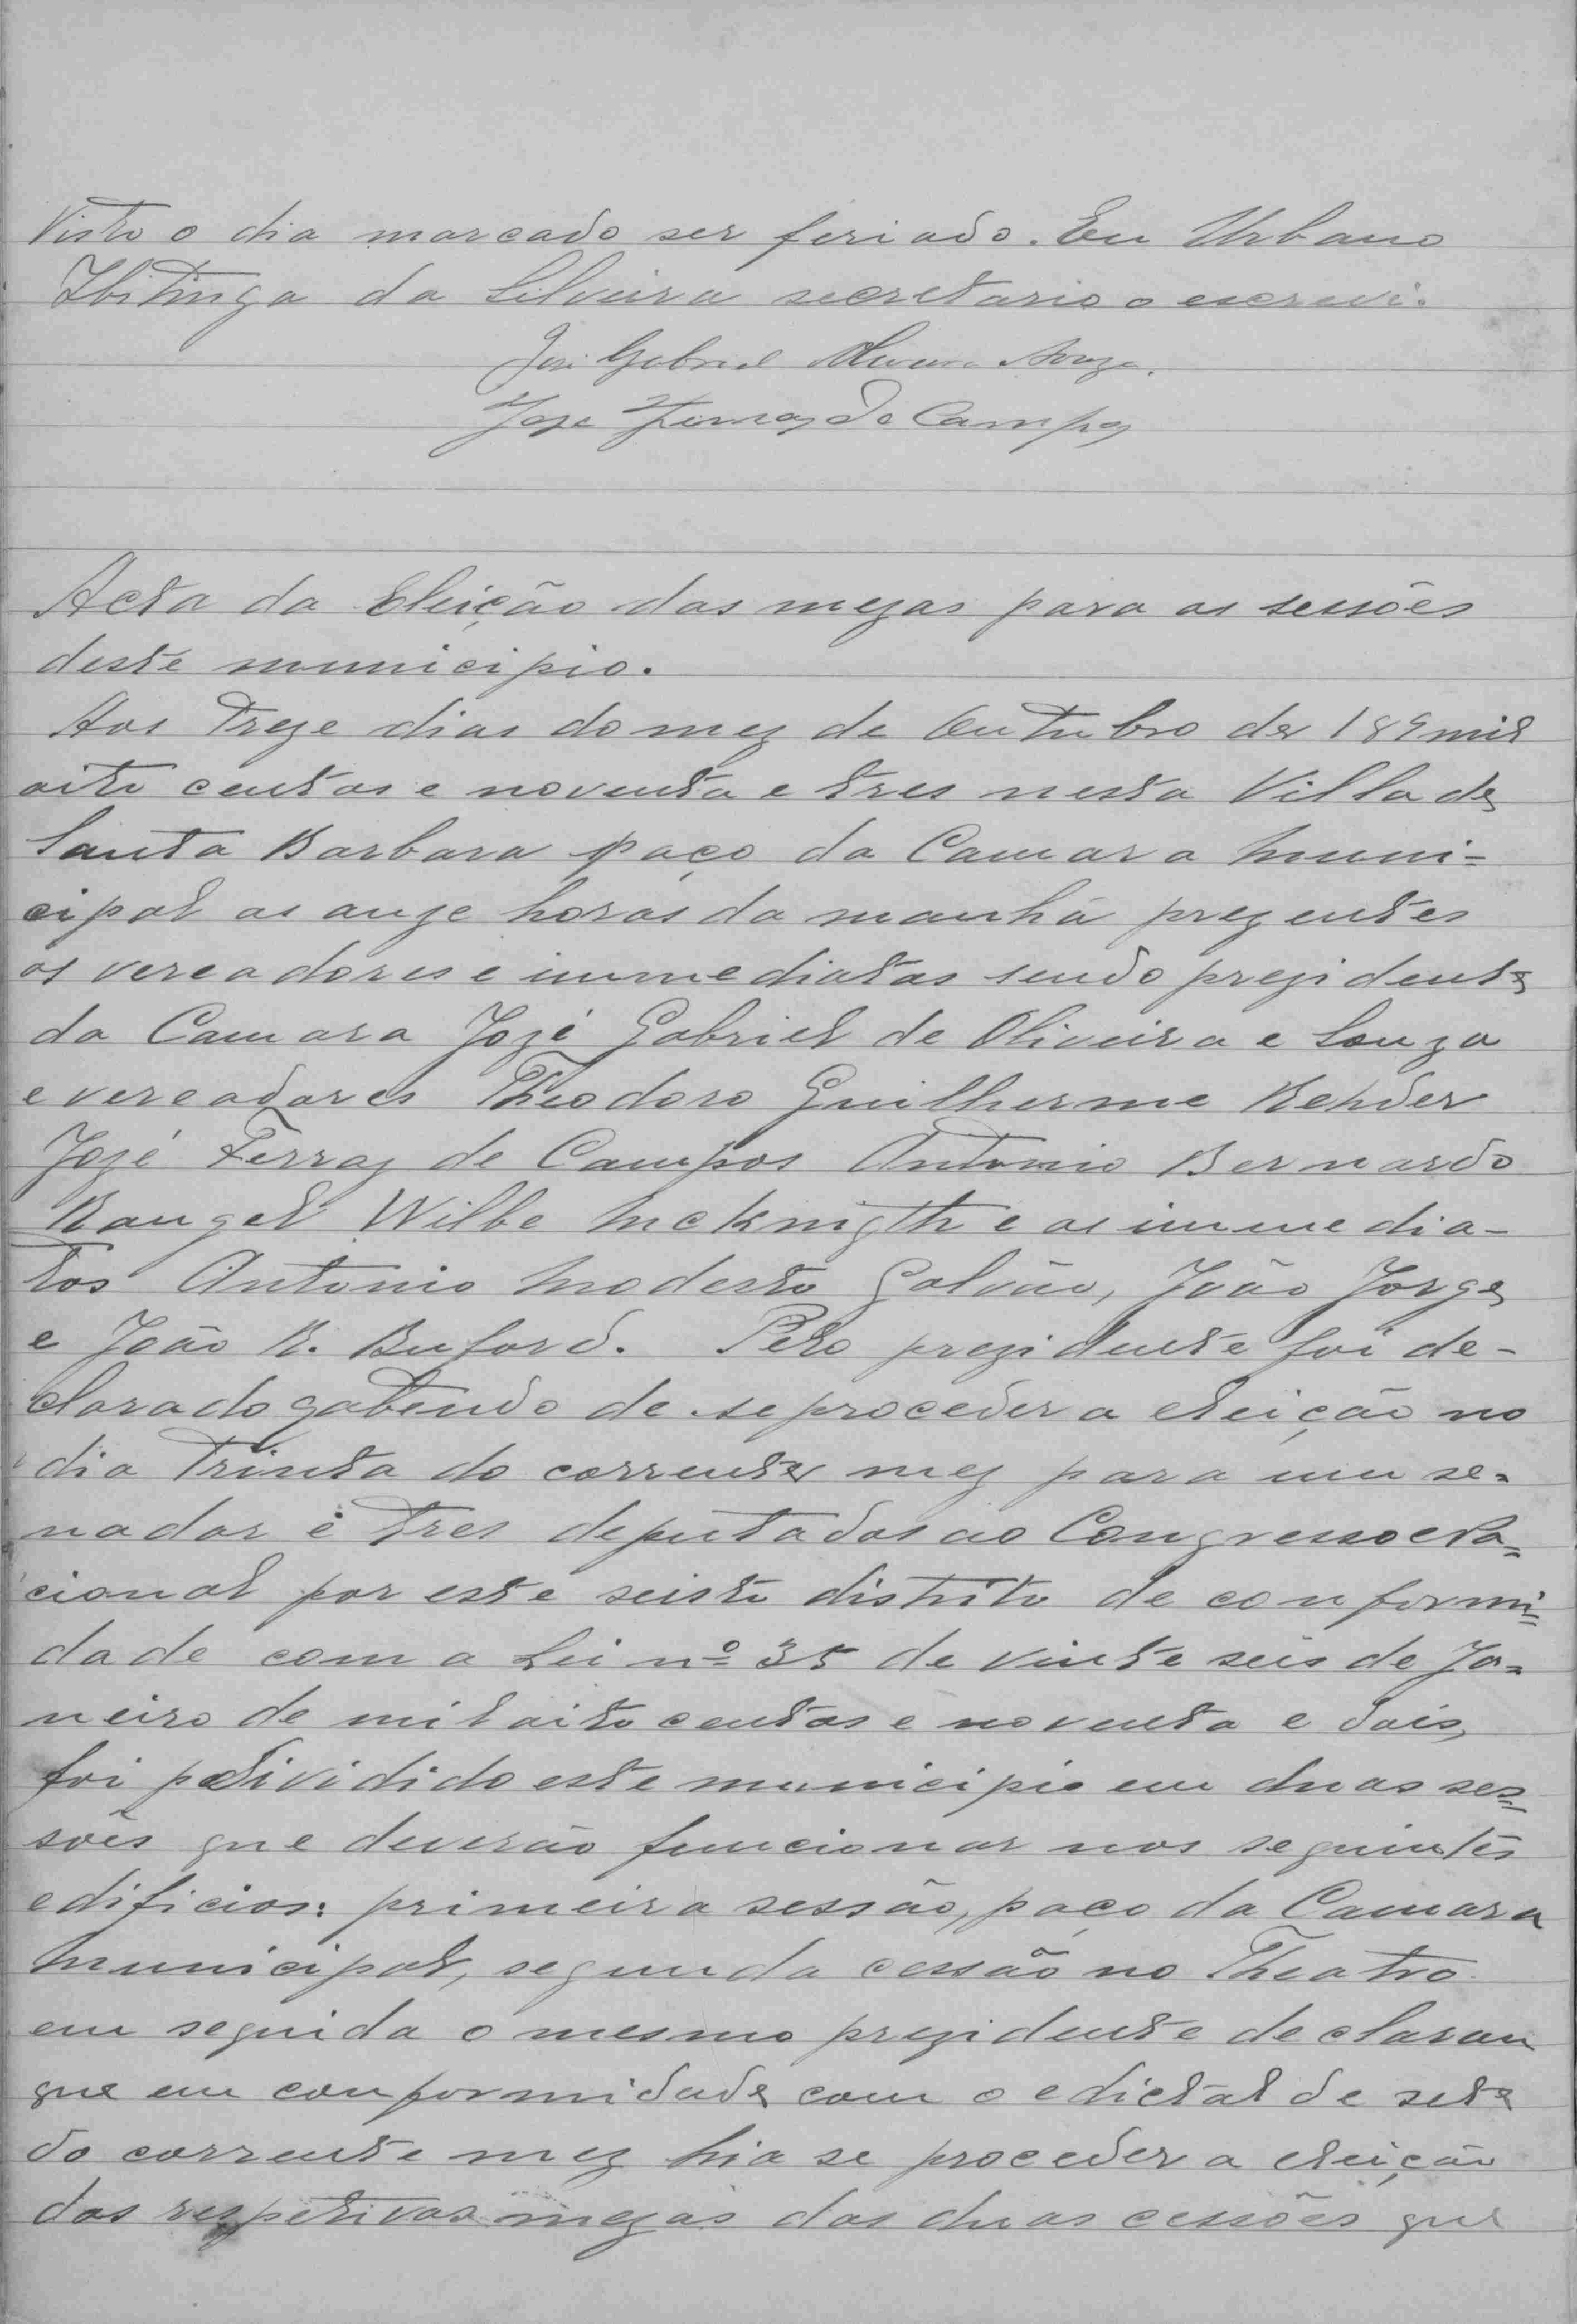 Visto o dia marcado ser feriado. Eu Urbano
Ibitinga da Silveira secretario o escrevi.
José Gabriel Oliveira Souza.
Jose Ferraz de Campos
Acta da Eleição das mezas para as sessões
deste municipio.
Aos Treze dias do mez de Outubro de 189 mil
oito centos e noventa e tres nesta Villa de
Santa Barbara paço da Camara muni=
cipal as onze horas da manhã prezentes
os vereadores e immediatos sendo prezidente
da Camara Jozé Gabriel de Oliveira e Souza
e vereadores Theodoro Guilherme Rehder
Jozé Ferraz de Campos Antonio Bernardo
Rangel Wilbe McKnigth e os immedia-
tos Antonio Modesto Galvão, João Jorge
e João R. Buford. Pelo prezidente foi de-
clarado q tendo de se proceder a eleição no
dia Trinta do corrente mez para um se=
nador e Tres deputados ao Congresso Na=
cional por este seisto distrito de conformi=
dade com a Lei nº 35 de vinte seis de Ja=
neiro de mil oito centos e noventa e dois,
foi dividido este municipio em duas ses=
sões que deverão funcionar nos seguintes
edificios: primeira sessão, paço da Camara
Municipal, segunda cessão no Theatro
em seguida o mesmo prezidente declarou
que em conformidade com o edictal de sete
do corrente mez hia se proceder a eleição
das respetivas mezas das duas cessões que